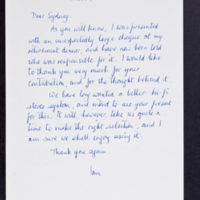 Dear Sydney,
As you will know, I was presented
with an unexpectedly large cheque at my
retirement dinner, and have now been told
who was responsible for it. I would like
to thank you very much for your
contribution, and for the thought behind it.
We have long wanted a better hi-fi
stereo system, and intend to use your present
for this. It will, however, take us quite a
time to make the right selection, and I
am sure we shall enjoy using it.
Thank you again.
Ian